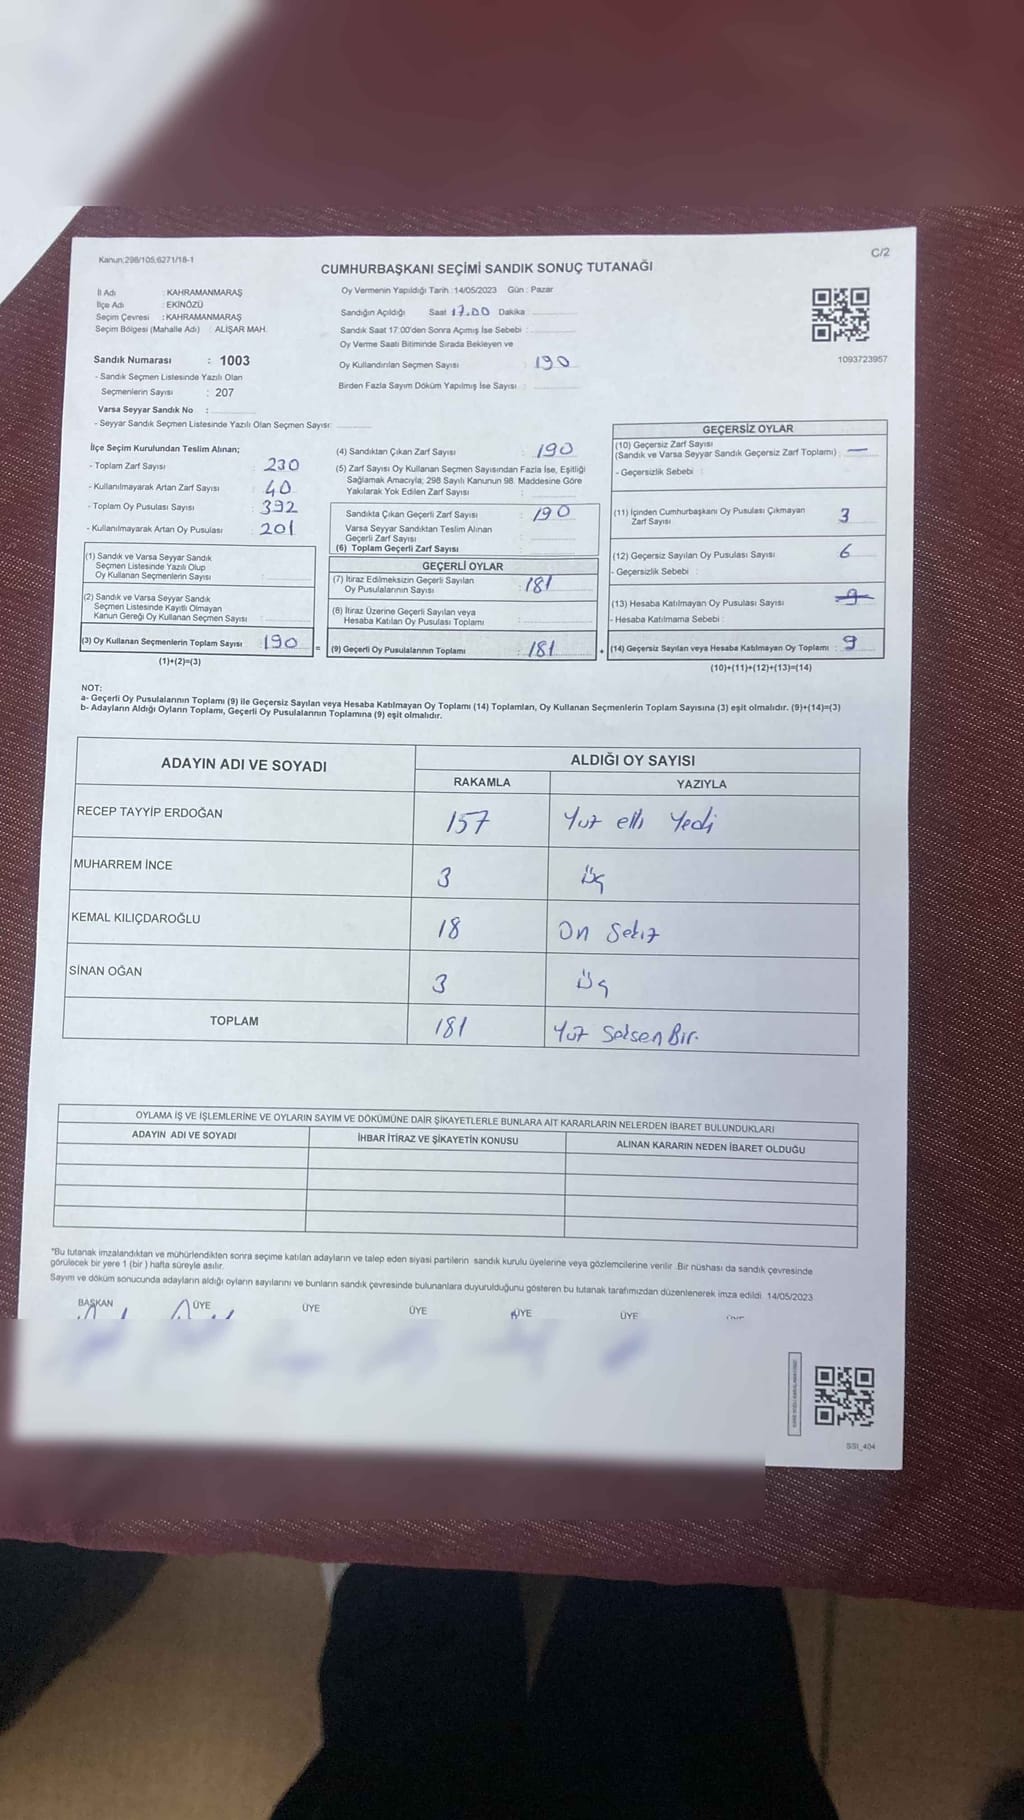 Kanun:298/105,6271/18-1
C/2
CUMHURBAŞKANI SEÇİMİ SANDIK SONUÇ TUTANAĞI
İl Adı : KAHRAMANMARAŞ
İlçe Adı : EKİNÖZÜ
Seçim Çevresi : KAHRAMANMARAŞ
Seçim Bölgesi (Mahalle Adı) : ALİŞAR MAH.
Sandık Numarası : 1003
- Sandık Seçmen Listesinde Yazılı Olan
Seçmenlerin Sayısı : 207
Varsa Seyyar Sandık No :
- Seyyar Sandık Seçmen Listesinde Yazılı Olan Seçmen Sayısı:
Oy Vermenin Yapıldığı Tarih : 14/05/2023 Gün : Pazar
Sandığın Açıldığı Saat 17.00 Dakika :
Sandık Saat 17:00'den Sonra Açımış İse Sebebi :
Oy Verme Saati Bitiminde Sırada Bekleyen ve
Oy Kullandırılan Seçmen Sayısı : 190
Birden Fazla Sayım Döküm Yapılmış İse Sayısı :
1093723957
İlçe Seçim Kurulundan Teslim Alınan;
- Toplam Zarf Sayısı : 230
- Kullanılmayarak Artan Zarf Sayısı : 40
- Toplam Oy Pusulası Sayısı : 392
- Kullanılmayarak Artan Oy Pusulası : 201
(1) Sandık ve Varsa Seyyar Sandık
Seçmen Listesinde Yazılı Olup
Oy Kullanan Seçmenlerin Sayısı :
(2) Sandık ve Varsa Seyyar Sandık
Seçmen Listesinde Kayıtlı Olmayan
Kanun Gereği Oy Kullanan Seçmen Sayısı :
(3) Oy Kullanan Seçmenlerin Toplam Sayısı : 190 =
(1)+(2)=(3)
(4) Sandıktan Çıkan Zarf Sayısı : 190
(5) Zarf Sayısı Oy Kullanan Seçmen Sayısından Fazla İse, Eşitliği
Sağlamak Amacıyla, 298 Sayılı Kanunun 98. Maddesine Göre
Yakılarak Yok Edilen Zarf Sayısı :
Sandıkta Çıkan Geçerli Zarf Sayısı : 190
Varsa Seyyar Sandıktan Teslim Alınan
Geçerli Zarf Sayısı :
(6) Toplam Geçerli Zarf Sayısı :
GEÇERLİ OYLAR
(7) İtiraz Edilmeksizin Geçerli Sayılan
Oy Pusulalarının Sayısı : 181
(8) İtiraz Üzerine Geçerli Sayılan veya
Hesaba Katılan Oy Pusulası Toplamı :
(9) Geçerli Oy Pusulalarının Toplamı : 181 +
GEÇERSİZ OYLAR
(10) Geçersiz Zarf Sayısı
(Sandık ve Varsa Seyyar Sandık Geçersiz Zarf Toplamı) : —
- Geçersizlik Sebebi :
(11) İçinden Cumhurbaşkanı Oy Pusulası Çıkmayan
Zarf Sayısı : 3
(12) Geçersiz Sayılan Oy Pusulası Sayısı : 6
- Geçersizlik Sebebi :
(13) Hesaba Katılmayan Oy Pusulası Sayısı : 9
- Hesaba Katılmama Sebebi :
(14) Geçersiz Sayılan veya Hesaba Katılmayan Oy Toplamı : 9
(10)+(11)+(12)+(13)=(14)
NOT:
a- Geçerli Oy Pusulalarının Toplamı (9) ile Geçersiz Sayılan veya Hesaba Katılmayan Oy Toplamı (14) Toplamları, Oy Kullanan Seçmenlerin Toplam Sayısına (3) eşit olmalıdır. (9)+(14)=(3)
b- Adayların Aldığı Oyların Toplamı, Geçerli Oy Pusulalarının Toplamına (9) eşit olmalıdır.
ADAYIN ADI VE SOYADI ALDIĞI OY SAYISI
RAKAMLA YAZIYLA
RECEP TAYYİP ERDOĞAN 157 Yüz elli Yedi
MUHARREM İNCE 3 Üç
KEMAL KILIÇDAROĞLU 18 On Sekiz
SİNAN OĞAN 3 Üç
TOPLAM 181 Yüz Seksen Bir.
OYLAMA İŞ VE İŞLEMLERİNE VE OYLARIN SAYIM VE DÖKÜMÜNE DAİR ŞİKAYETLERLE BUNLARA AİT KARARLARIN NELERDEN İBARET BULUNDUKLARI
ADAYIN ADI VE SOYADI İHBAR İTİRAZ VE ŞİKAYETİN KONUSU ALINAN KARARIN NEDEN İBARET OLDUĞU
*Bu tutanak imzalandıktan ve mühürlendikten sonra seçime katılan adayların ve talep eden siyasi partilerin sandık kurulu üyelerine veya gözlemcilerine verilir. Bir nüshası da sandık çevresinde
görülecek bir yere 1 (bir ) hafta süreyle asılır.
Sayım ve döküm sonucunda adayların aldığı oyların sayılarını ve bunların sandık çevresinde bulunanlara duyurulduğunu gösteren bu tutanak tarafımızdan düzenlenerek imza edildi. 14/05/2023
BAŞKAN ÜYE ÜYE ÜYE ÜYE ÜYE
SSI_404